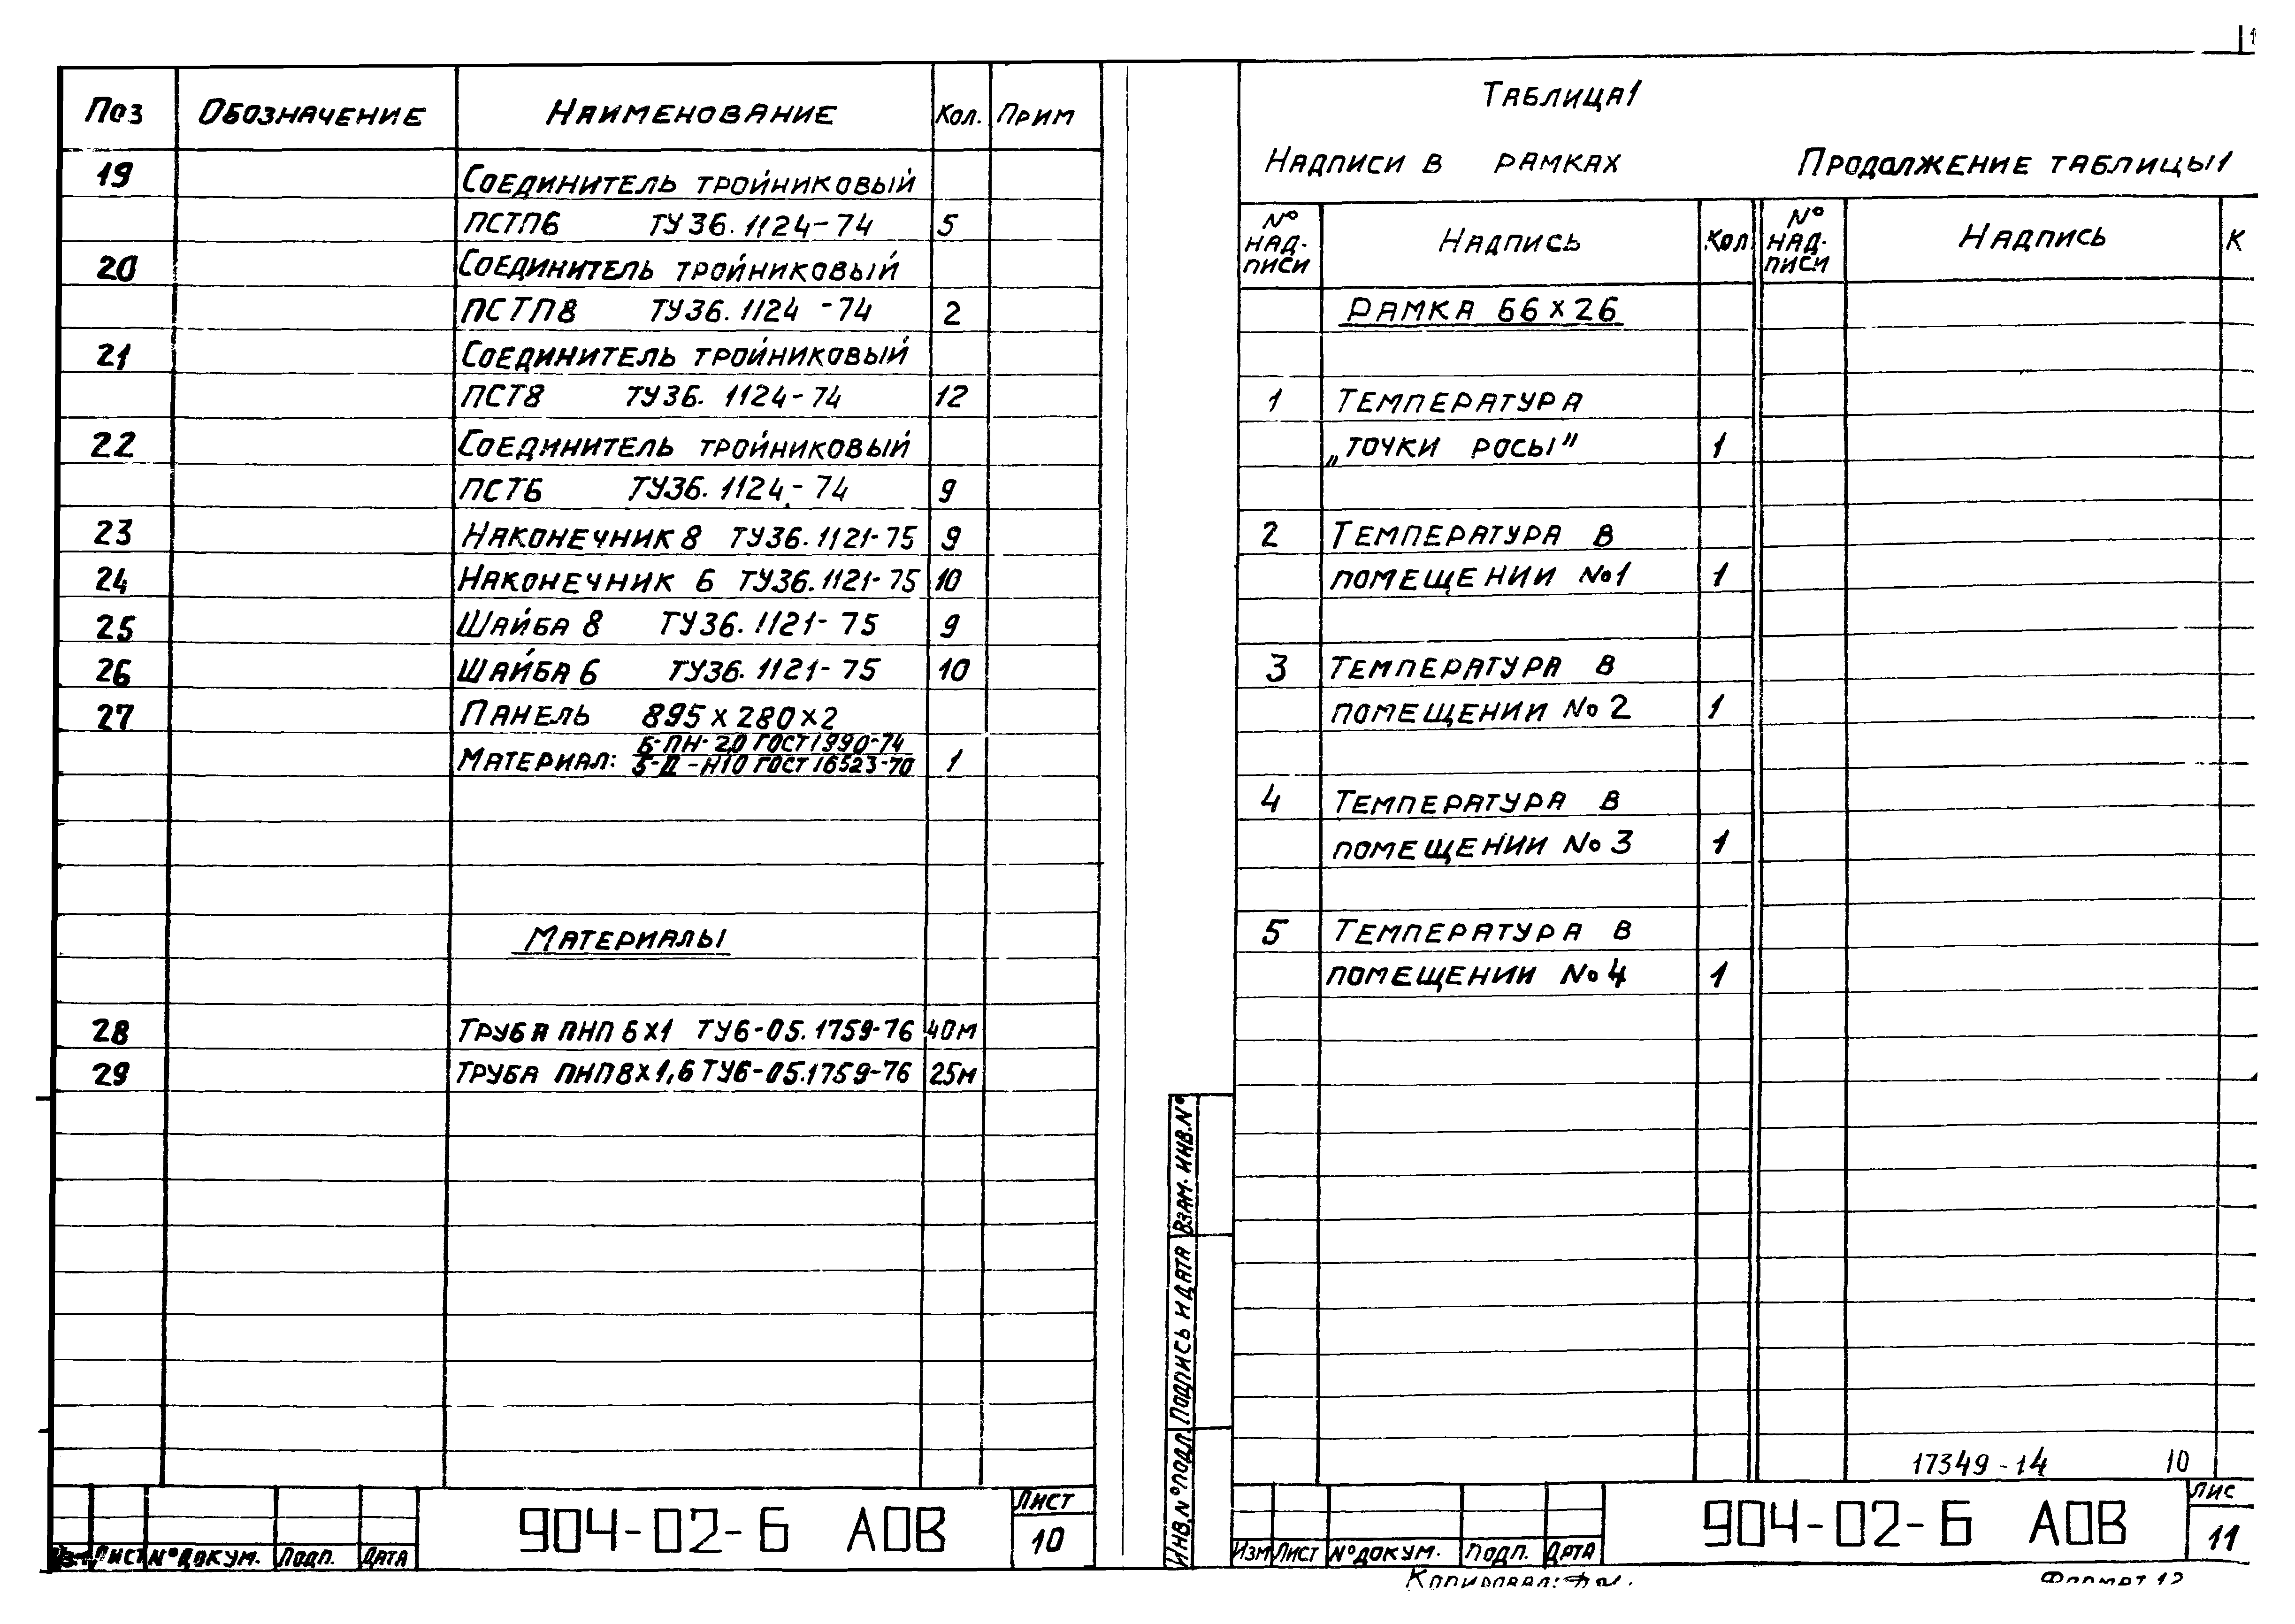 Поз Обозначение Наименование Кол. Прим
19 Соединитель тройниковый
ПСТП6 ТУ36.1124-74 5
20 Соединитель тройниковый
ПСТП8 ТУ36.1124-74 2
21 Соединитель тройниковый
ПСТ8 ТУ36.1124-74 12
22 Соединитель тройниковый
ПСТ6 ТУ36.1124-74 9
23 Наконечник 8 ТУ36.1121-75 9
24 Наконечник 6 ТУ36.1121-75 10
25 Шайба 8 ТУ36.1121-75 9
26 Шайба 6 ТУ36.1121-75 10
27 Панель 895х280х2
Б-ПН-2,0 ГОСТ1990-74
Материал: 5-II-Н10 ГОСТ16523-70 1
Материалы
28 Труба ПНП 6х1 ТУ6-05.1759-76 40м
29 Труба ПНП8х1,6 ТУ6-05.1759-76 25м
Изм. Лист №докум. Подп. Дата
904-02-Б АОВ
Лист
10
Таблица1
Надписи в рамках
Продолжение таблицы1
№ надписи Надпись Кол № надписи Надпись К
Рамка 66х26
1 Температура
„точки росы" 1
2 Температура в
помещении №1 1
3 Температура в
помещении №2 1
4 Температура в
помещении №3 1
5 Температура в
помещении №4 1
Взам. инв.№
Подпись и дата
Инв.№подл.
17349-14 10
Изм Лист №докум. Подп. Дата
904-02-Б АОВ
Лис
11
Копировал:
Формат 12